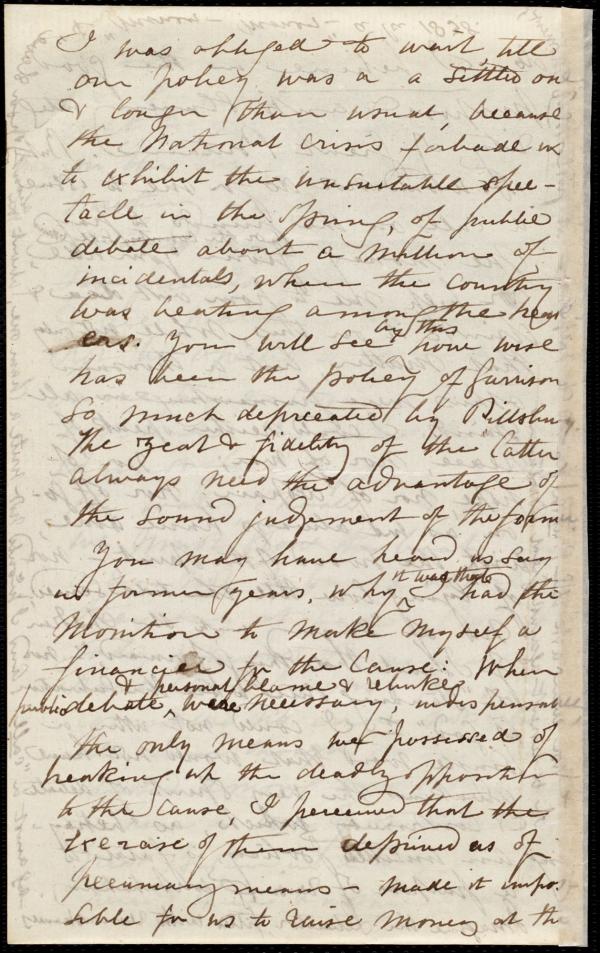 I was obliged to wait, till
our policy was a a settled on
& longer than usual, because
the National crisis forbade us
to exhibit the unsuitable spec-
tacle in the Spring, of public
debate about a million of
incidentals, when the country
was beating among the heav
ers. You will see by this how wise
has been the policy of Garrison
so much deprecated by Pillsbury
The zeal & fidelity of the latter
always need the advantage of
the sound judgement of the form
You may have heard us say
in former years, why it was that I had the
Monition to make myself a
financier for the Cause: When
public debate, & personal blame & rebuke were necessary, indispensable
the only means we possessed of
breaking up the deadly opposition
to the cause, I perceived that the
exercise of them deprived us of
pecuniary means - made it impos
sible for us to raise money at the